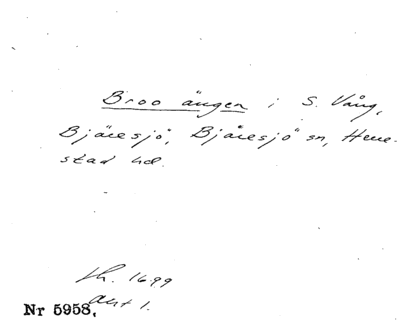 Broo ängen i S. Vång,
Bjäresjö, Bjäresjö sn, Herre-
stad hd.
1699
akt 1.
Nr 5958,